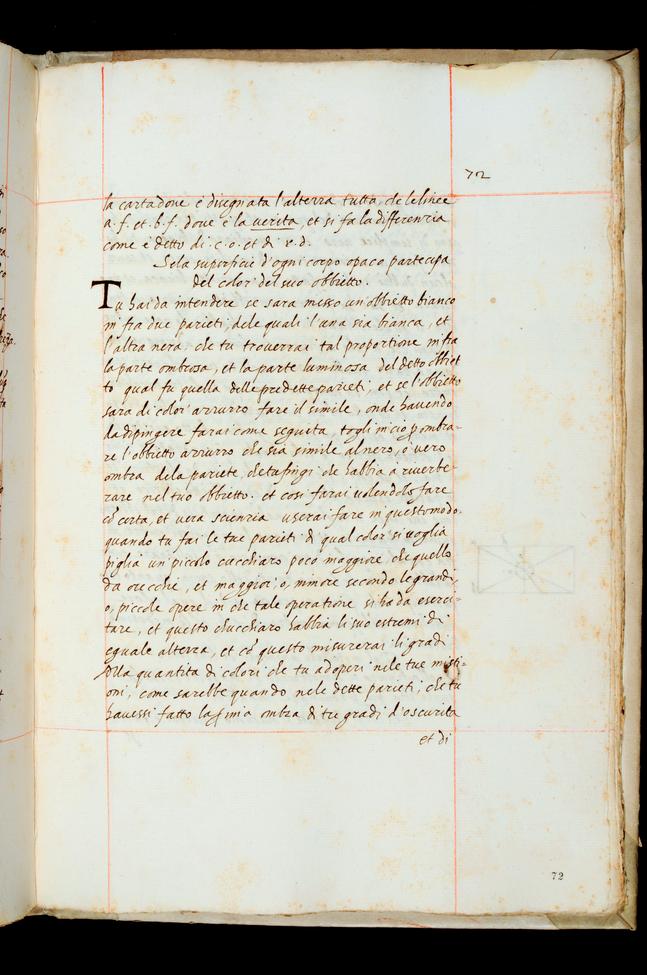 72
la carta doue è disegnata l'alterza tutta, che le linee
a. f. et. b. f. doue è la uerita, et si fa la differenza
come è detto di. c. o. et di r. d.
Se la superficie d'ogni corpo opaco partecipa
del color del suo obbietto.
Tu hai da intendere se sara messo un'obbietto bianco
in fra due parieti, dele quali l'una sia bianca, et
l'altra nera che tu trouerrai tal proportione in fra
la parte ombrosa, et la parte luminosa del detto obbiet
to qual fu quella delle predette parieti, et se l'obbietto
sara di color azzurro fare il simile, onde hauendo
da dipingere farai come seguita, togli in cio p ombra-
re l'obbietto azzurro che sia simile al nero, o uero
ombra dela pariete, che tu fingi che habbia à riuerbe-
rare nel tuo obbietto. et cosi farai uolendolo fare
cō certa, et uera scienzia userai fare in questo modo.
quando tu fai le tue parieti di qual color si uoglia
piglia un piccolo cucchiaro poco maggiore, che quello
da orecchie, et maggior, o, minore secondo le grandi,
o, piccole opere in che tale operatione si ha da eserci-
tare, et questo chucchiaro habbia li suo estremi di
eguale alterza, et cō questo misurerai li gradi
della quantita di colori che tu adoperi nele tue misti-
oni, come sarebbe quando nele dette parieti, che tu
hauessi fatto la p̄ima ombra di tre gradi d'oscurita
et di
72